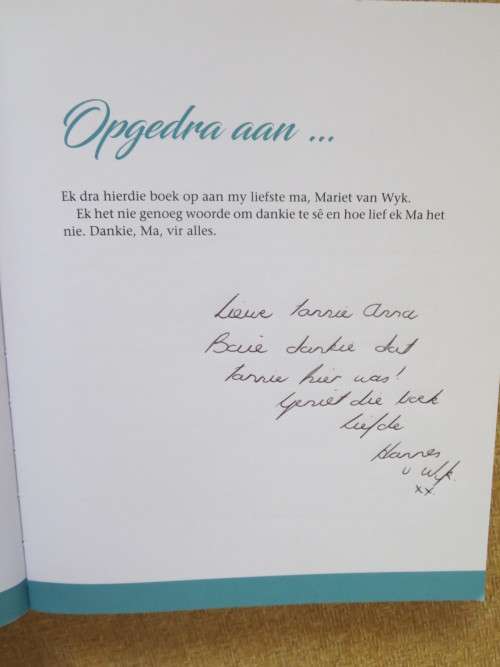 Opgedra aan ...
Ek dra hierdie boek op aan my liefste ma, Mariet van Wyk.
Ek het nie genoeg woorde om dankie te sê en hoe lief ek Ma het
nie. Dankie, Ma, vir alles.
Liewe tannie Anna
Baie dankie dat
tannie hier was!
Geniet die boek
Liefde
Hannes
v Wyk.
xx